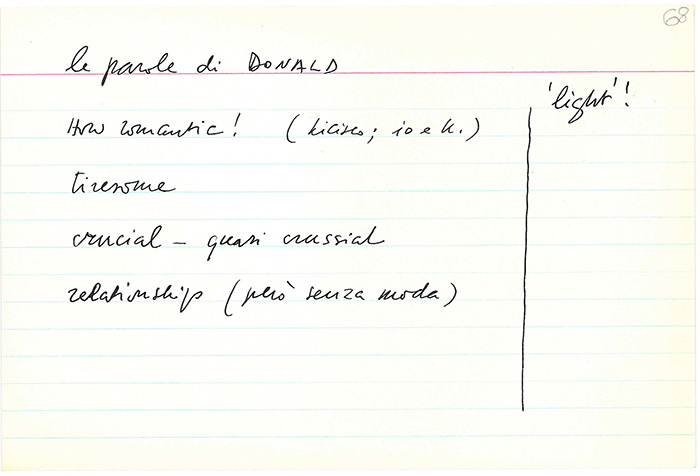 68
le parole di DONALD
'light'!
How romantic! ( ; io e k.)
tiresome
crucial – quasi crussial
relationship (però senza moda)